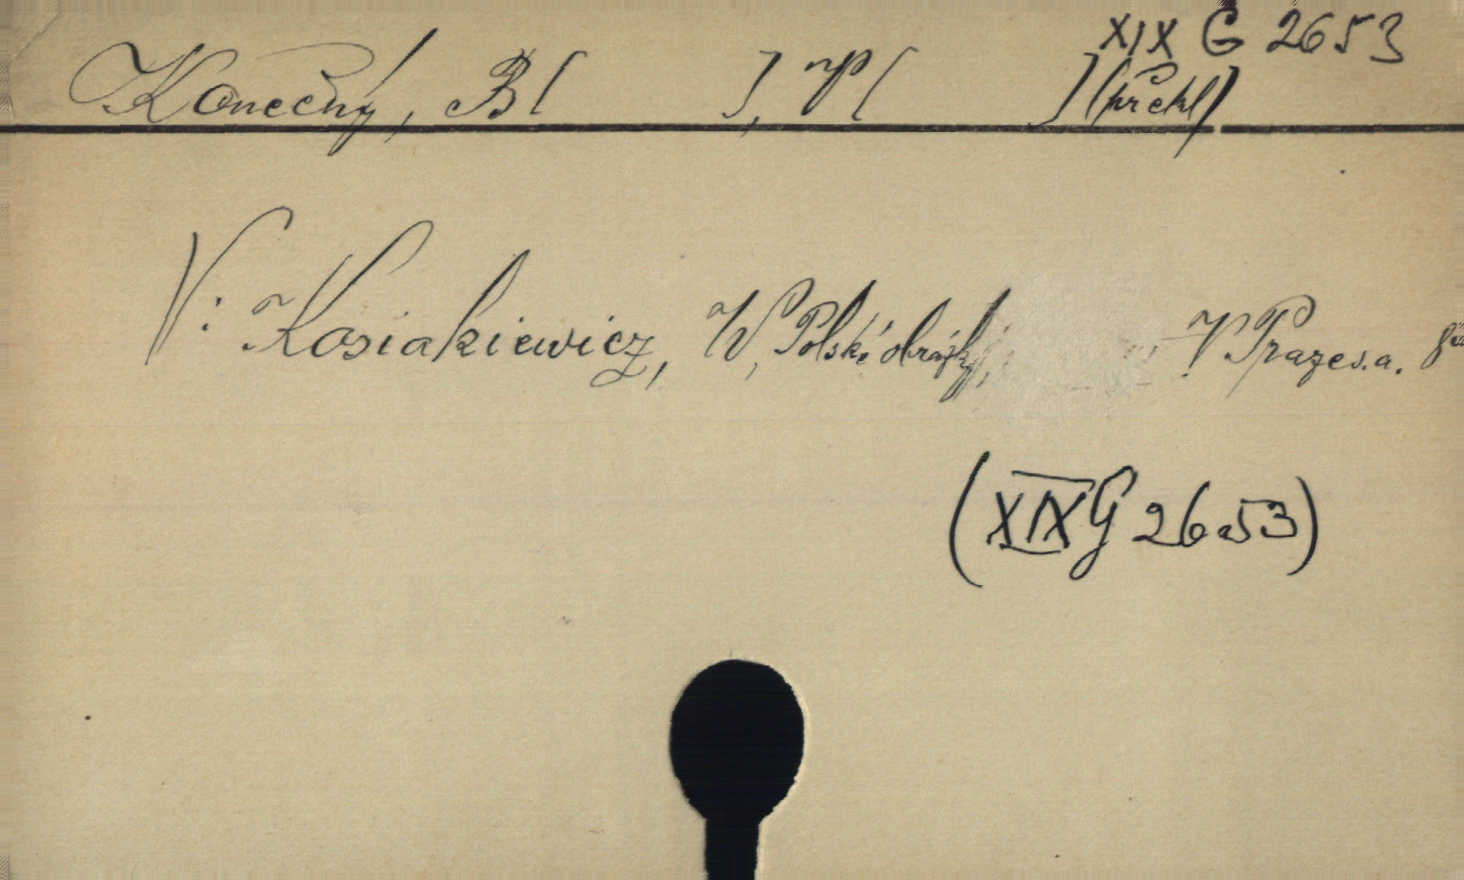 XIX G 2653
Konečný, B[ ], P[ ](překl)
V: Kosiakiewicz, W, Polské obrázky, V Praze s.a.
(XIX G 2653)